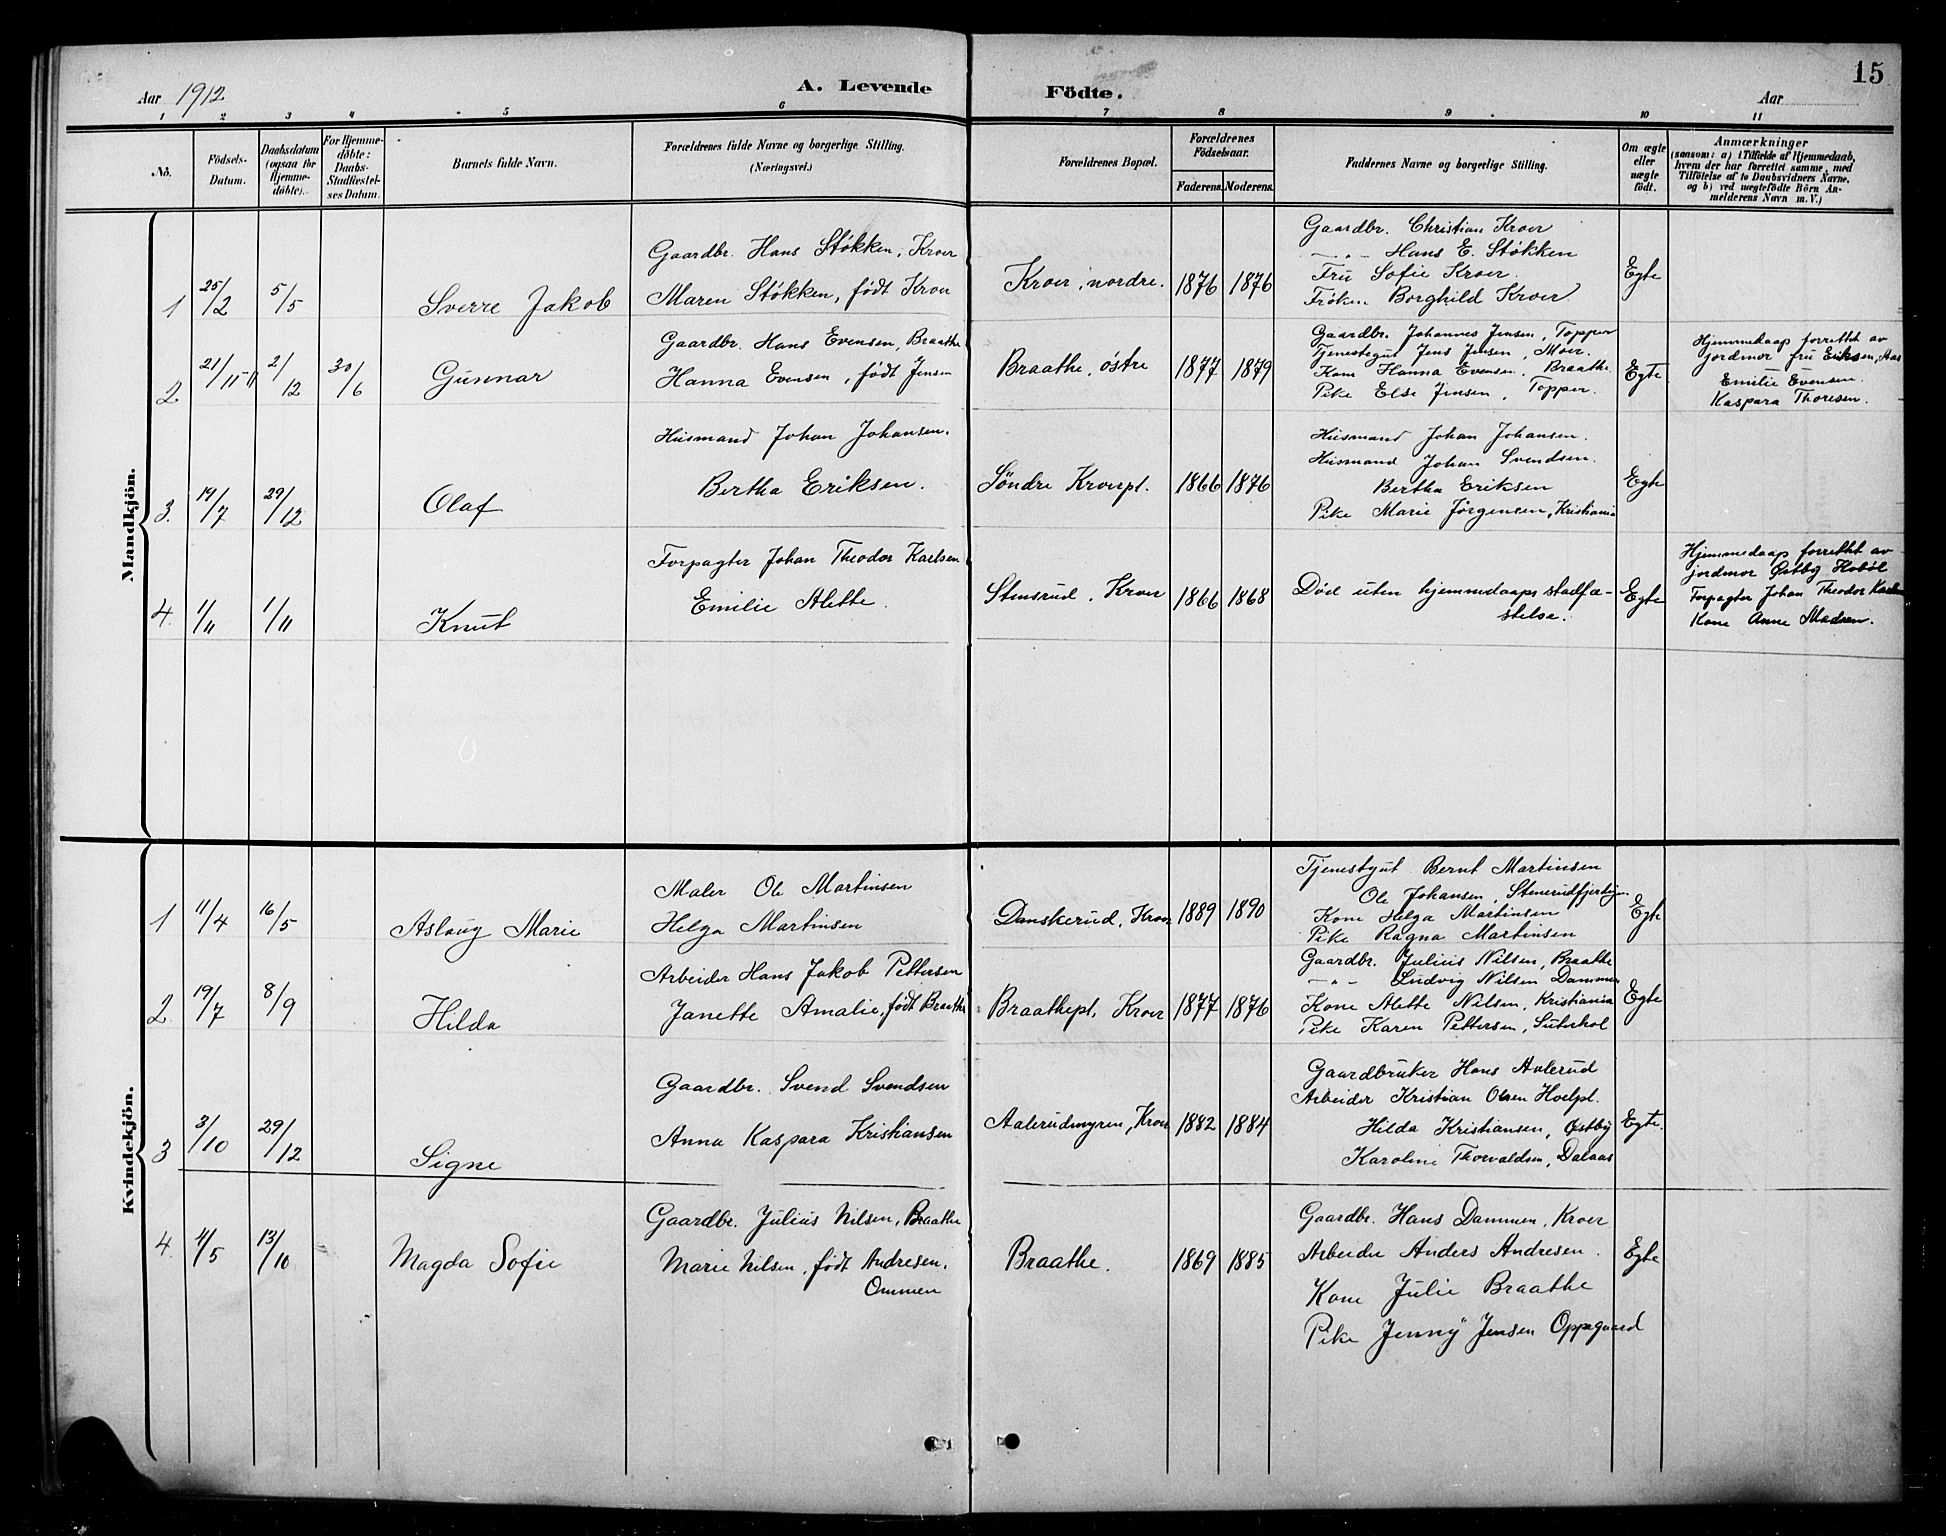 Aar 1912
A. Levende
Födte.
Aar
15
1 2 3 4 5 6 7 8 9 10 11
No.
Födsels-
Datum.
Daabsdatum
(ogsaa for
Hjemme-
døbte).
For Hjemme-
døbte:
Daabs-
Stadfæstel-
ses Datum.
Barnets fulde Navn.
Forældrenes fulde Navne og borgerlige Stilling.
(Næringsvei.)
Forældrenes Bopæl.
Forældrenes
Födselsaar.
Faderens. Moderens.
Faddernes Navne og borgerlige Stilling.
Om ægte
eller
uægte
födt.
Anmærkninger
(saasom: a) i Tilfælde af Hjemmedaab,
hvem der har forrettet samme, med
Tilföielse af to Daabsvidners Navne,
og b) ved uægtefödte Börn An-
melderens Navn m. V.)
Mandkjön.
1 25/2 5/5 Sverre Jakob
Gaardbr. Hans Støkken, Kroer
Maren Støkken, født Kroer
Kroer, nordre. 1876 1876
Gaardbr. Christian Kroer
—"— Hans E. Støkken
Fru Sofie Kroer.
Frøken Borghild Kroer
Egte
2 21/11 2/12 30/6 Gunnar
Gaardbr. Hans Evensen, Braathe
Hanna Evensen, født Jensen
Braathe, østre 1877 1879
Gaardbr. Johannes Jensen, Topper
Tjenestegut Jens Jensen, Moer.
Kone Hanna Evensen, Braathe
Pike Else Jensen, Topper.
Egte
Hjemmedaap forrettet av
jordmor fru Eriksen, Aas
Emilie Evensen.
Kaspara Thoresen.
3. 19/7 29/12 Olaf
Husmand Johan Johansen.
Bertha Eriksen.
Søndre Kroerpl. 1866 1876
Husmand Johan Johansen.
Husmand Johan Svendsen.
Bertha Eriksen
Pike Marie Jørgensen, Kristiania
Egte
4. 1/11 1/11 Knut
Forpagter Johan Theodor Karlsen
Emilie Alette.
Stensrud, Kroer 1866 1868
Død uten hjemmedaaps stadfæ-
stelse.
Egte
Hjemmedaap forrettet av
jordmor Østby Hobøl
Forpagter Johan Theodor Karlsen
Kone Anne Madsen.
Kvindekjön.
1 11/4 16/5 Aslaug Marie
Maler Ole Martinsen
Helga Martinsen
Danskerud, Kroer 1889 1890
Tjenestgut Bernt Martinsen
Ole Johansen, Stenerudfjerdingen
Kone Helga Martinsen
Pike Ragna Martinsen
Egte
2. 19/7 8/9 Hilda
Arbeider Hans Jakob Pettersen
Janette Amalie, født Braathe
Braathepl. Kroer 1877 1876
Gaardbr. Julius Nilsen, Braathe
—"— Ludvig Nilsen Dammen
Kone Alette Nilsen, Kristiania
Pike Karen Pettersen, Suterhol
Egte
3 3/10 29/12 Signe
Gaardbr. Svend Svendsen
Anna Kaspara Kristiansen
Aalerudmyren, Kroer 1882 1884
Gaardbruker Hans Aalerud
Arbeider Kristian Olsen Hoelpl.
Hilda Kristiansen, Østby
Karoline Thorvaldsen, Dalaas
Egte.
4. 4/5 13/10 Magda Sofie
Gaardbr. Julius Nilsen, Braathe
Marie Nilsen, født Andresen,
Ommen
Braathe. 1869 1885
Gaardbr. Hans Dammen, Kroer
Arbeider Anders Andresen.
Kone Julie Braathe
Pike Jenny Jensen Oppegaard
Egte